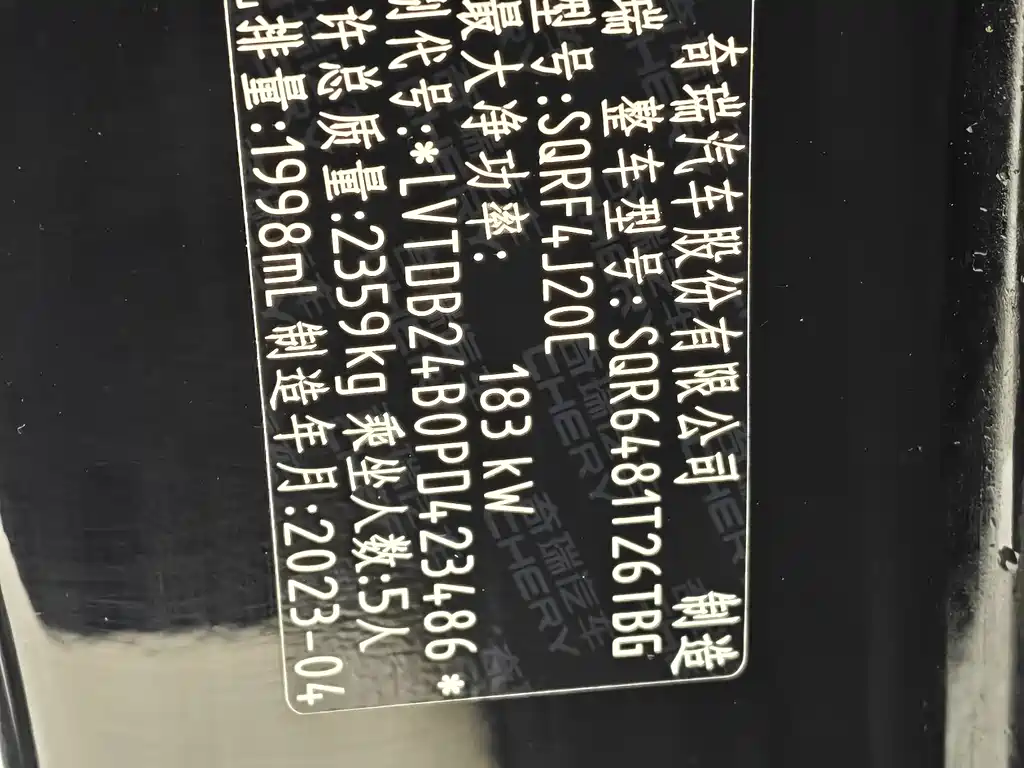 奇瑞汽车股份有限公司 制造
瑞 整车型号:SQR6481T26TBG
型号:SQRF4J20C
最大净功率: 183kW
别代号:*LVTDB24B0PD423486*
许总质量:2359kg 乘坐人数:5人
排量:1998mL 制造年月:2023-04